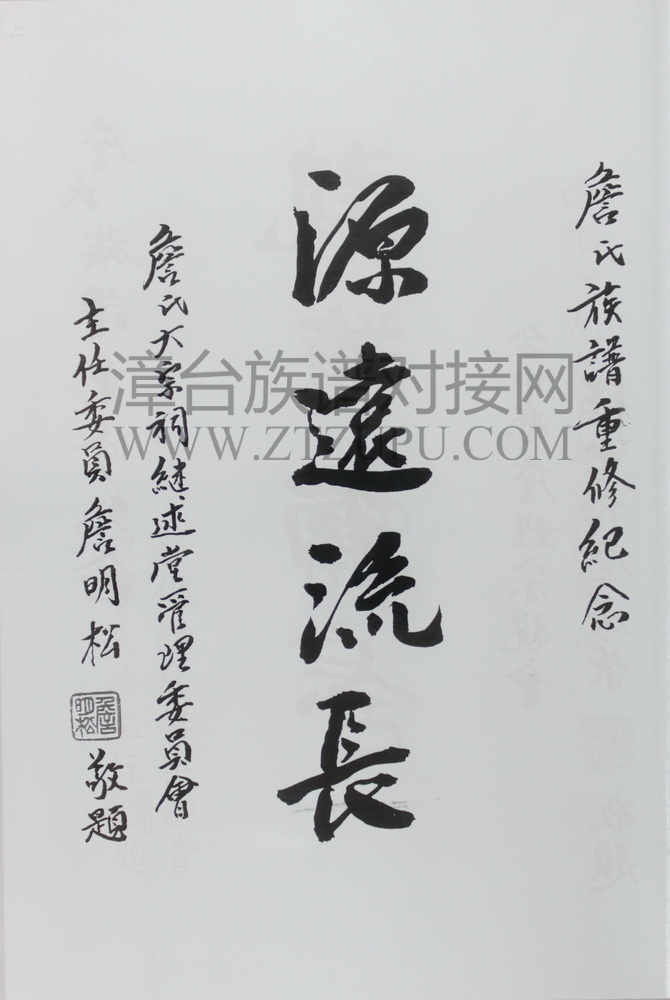 詹氏族譜重修紀念
源遠流長
詹氏大宗祠繼述堂管理委員會
主任委員詹明松
詹明松
敬題
漳台族谱对接网
WWW.ZTZUPU.COM